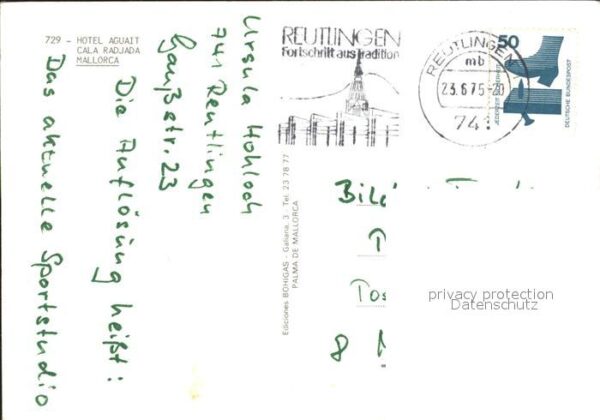 729 - HOTEL AGUAIT
CALA RADJADA
MALLORCA
Ursula Hohloch
741 Reutlingen
Gaußstr. 23
Die Auflösung heißt:
Das aktuelle Sportstudio
Ediciones BOHIGAS - Galiana, 3 - Tel. 23 78 77
PALMA DE MALLORCA
REUTLINGEN
Fortschritt aus Tradition
REUTLINGEN
mb
23.6.75-20
74
50
JEDERZEIT SICHERHEIT
DEUTSCHE BUNDESPOST
8
privacy protection
Datenschutz